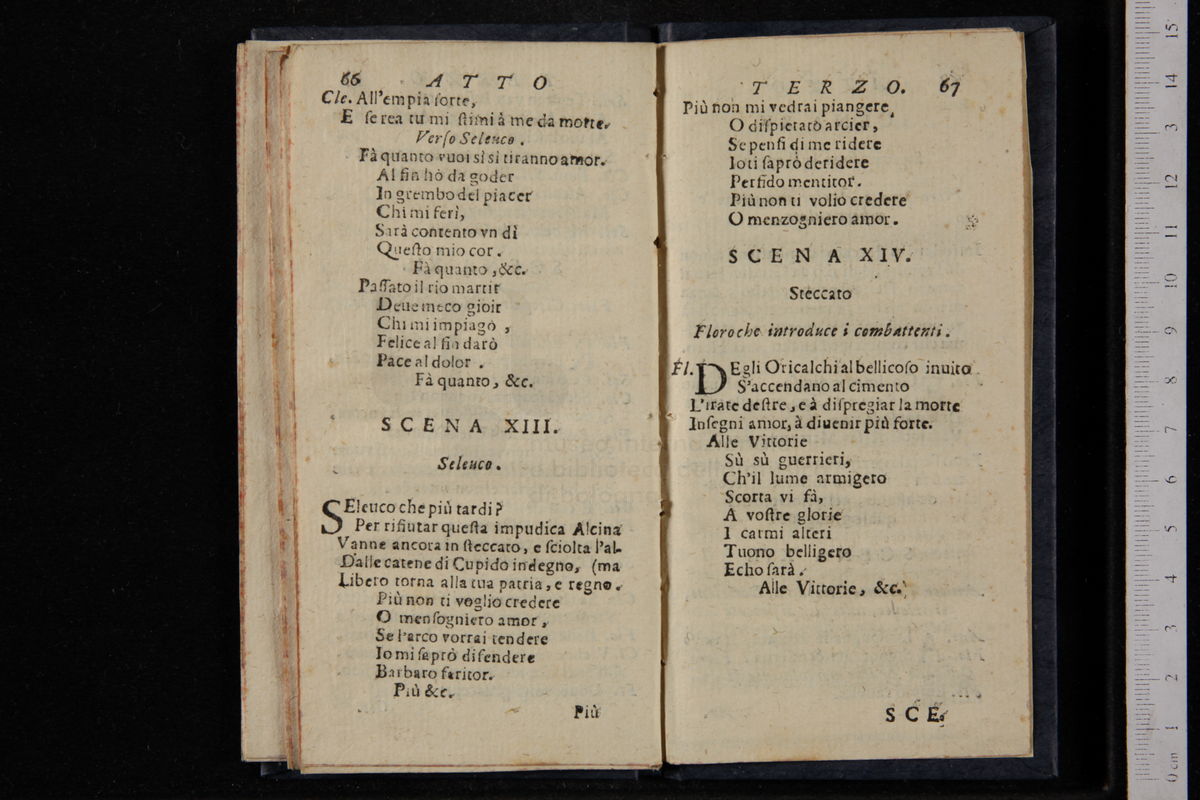 66 ATTO
Cle. All'empia ſorte,
E ſe rea tu mi ſtimi à me da morte.
Verſo Seleuco.
Fà quanto vuoi sì sì tiranno amor.
Al fin hò da goder
In grembo del piacer
Chi mi ferì,
Sarà contento vn dì
Queſto mio cor.
Fà quanto, &c.
Paſſato il rio martir
Deue meco gioir
Chi mi impiagò,
Felice al fin darò
Pace al dolor.
Fà quanto, &c.
SCENA XIII.
Seleuco.
SEleuco che più tardi?
Per rifiutar queſta impudica Alcina
Vanne ancora in ſteccato, e ſciolta l'al-
Dalle catene di Cupido indegno, (ma
Libero torna alla tua patria, e regno.
Più non ti voglio credere
O menſogniero amor,
Se l'arco vorrai tendere
Io mi ſaprò difendere
Barbaro feritor.
Più &c.
Più
TERZO. 67
Più non mi vedrai piangere,
O diſpietato arcier,
Se penſi di me ridere
Io ti ſaprò deridere
Perfido mentitor.
Più non ti volio credere
O menzogniero amor.
SCENA XIV.
Steccato
Floro che introduce i combattenti.
Fl. DEgli Oricalchi al bellicoſo inuito
S'accendano al cimento
L'irate deſtre, e à diſpregiar la morte
Inſegni amor, à diuenir più forte.
Alle Vittorie
Sù sù guerrieri,
Ch'il lume armigero
Scorta vi fà,
A voſtre glorie
I carmi alteri
Tuono belligero
Echo ſarà.
Alle Vittorie, &c.
SCE.
0 cm 1 2 3 4 5 6 7 8 9 10 11 12 13 14 15